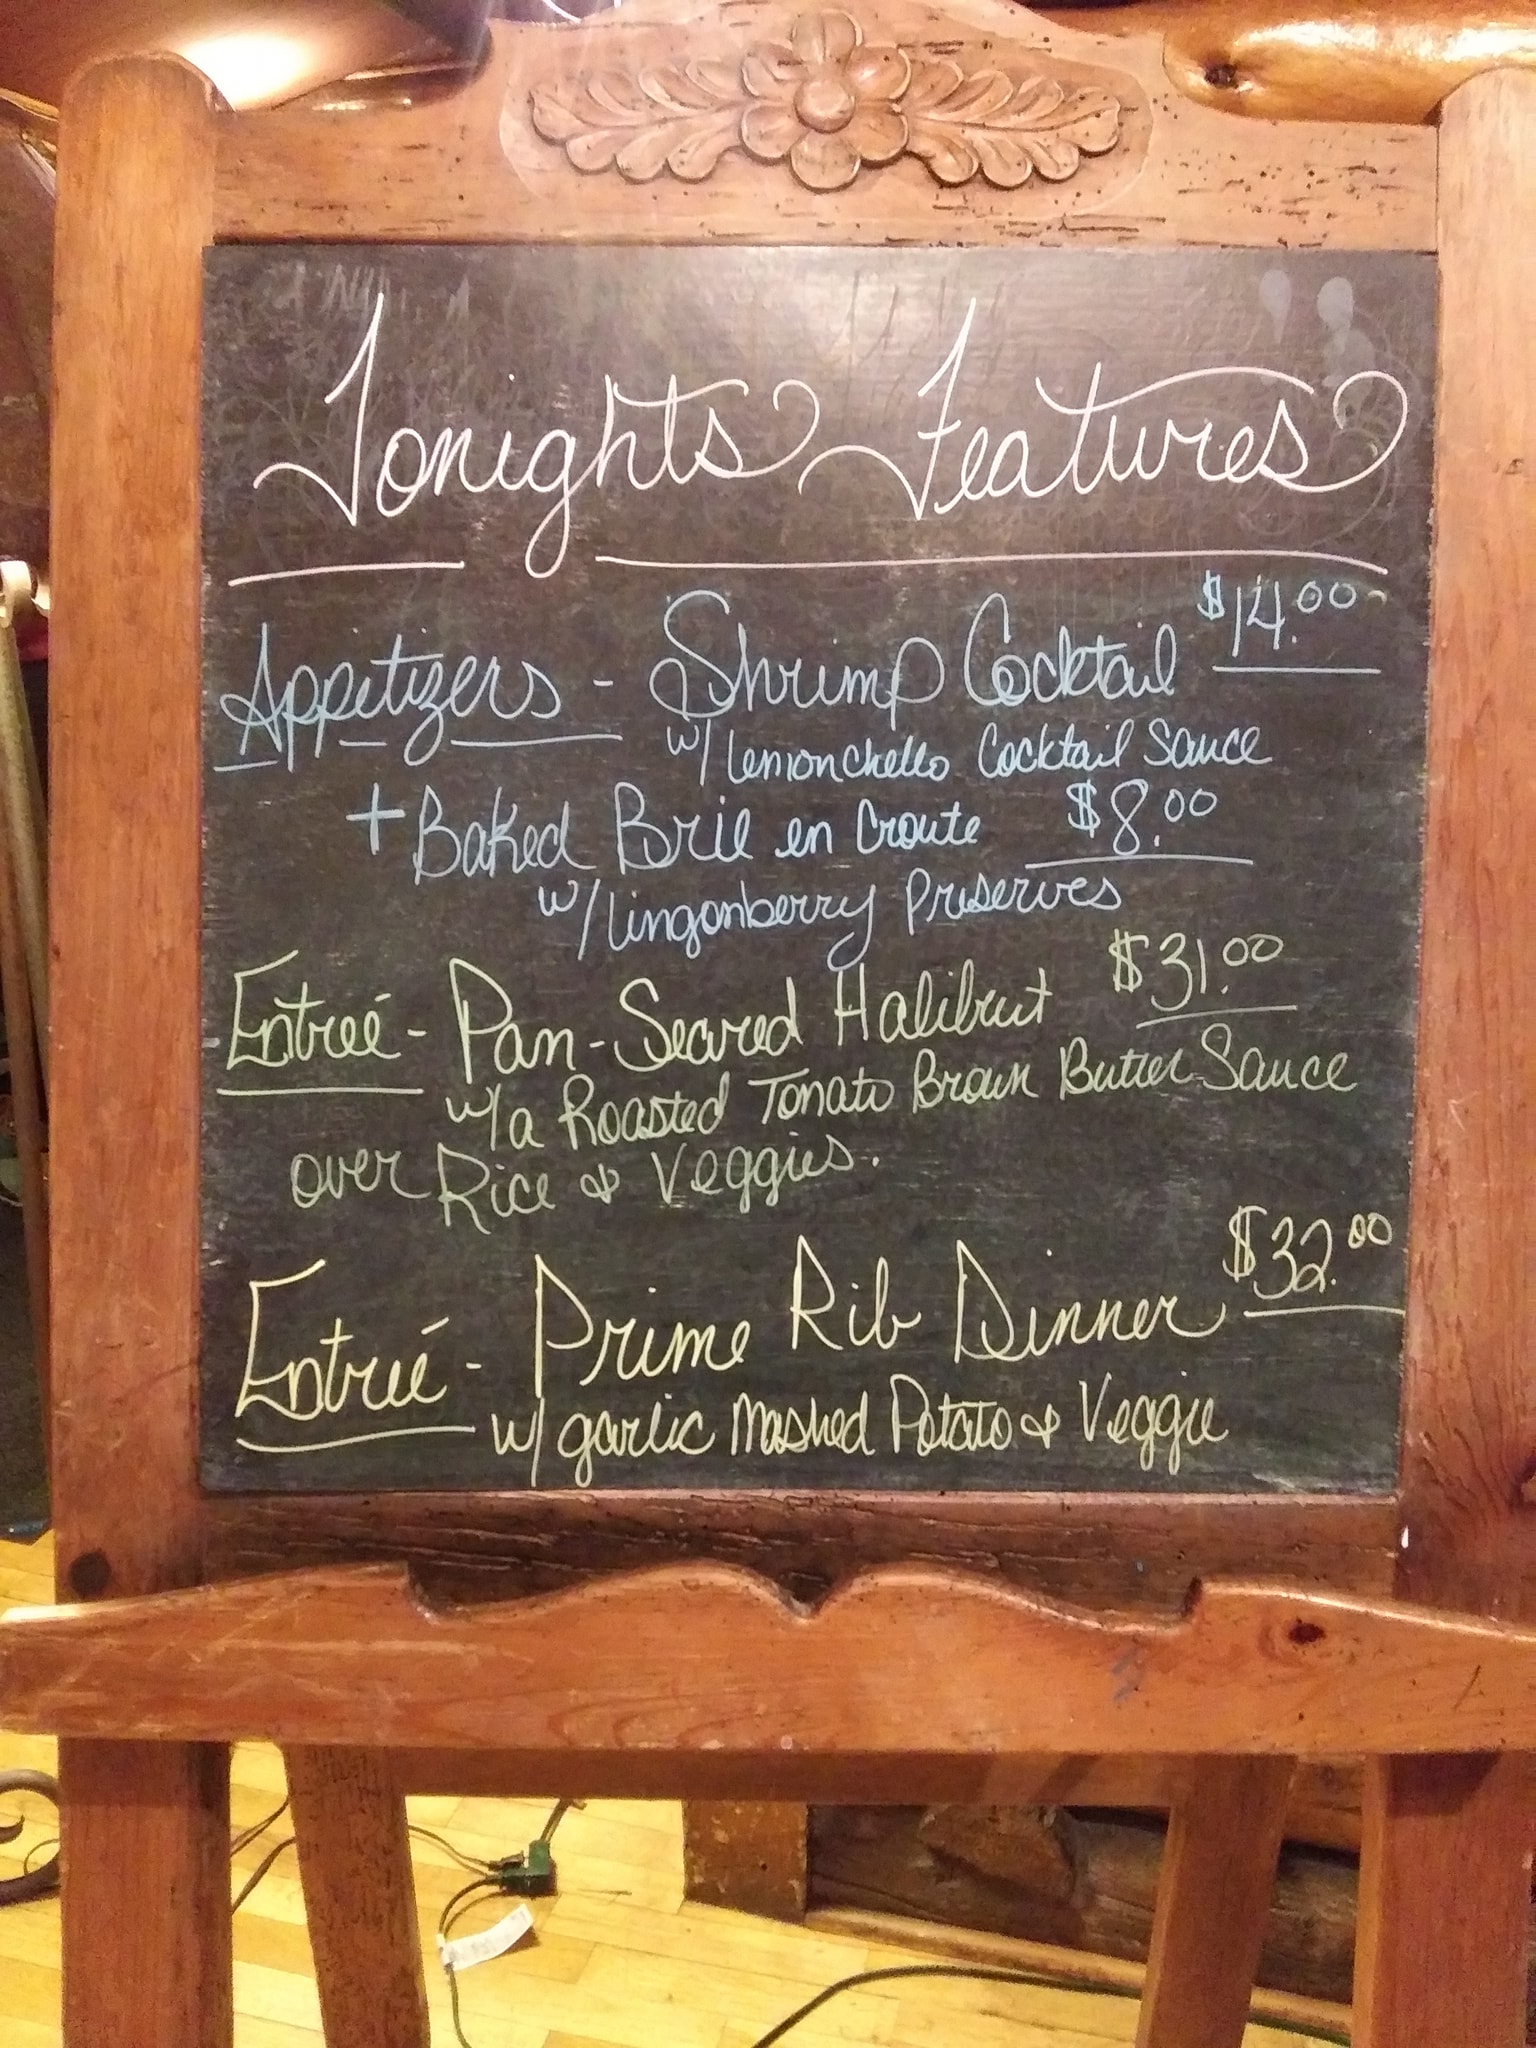 Tonights Features
Appetizers - Shrimp Cocktail $14.00
w/ lemonchello Cocktail Sauce
+ Baked Brie en Croute $8.00
w/ lingonberry Preserves
Entreé - Pan-Seared Halibut $31.00
w/a Roasted Tomato Brown Butter Sauce
over Rice & Veggies.
Entreé - Prime Rib Dinner $32.00
w/ garlic Mashed Potato & Veggie